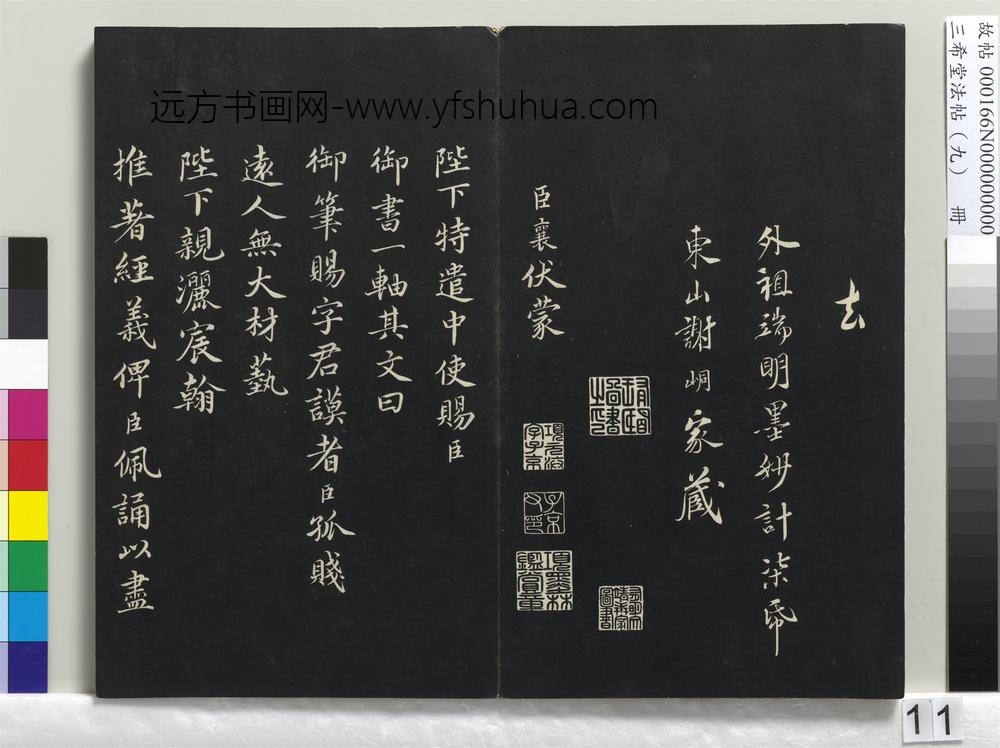 去
外祖端明墨妙計柒帋
東山謝峒家藏
臣襄伏蒙
陛下特遣中使賜臣
御書一軸其文曰
御筆賜字君謨者臣孤賤
遠人無大材藝
陛下親灑宸翰
推著經義俾臣佩誦以盡
项元汴
字子京
子京
項墨林
鑑賞章
远方书画网-www.yfshuhua.com
故帖 000166N000000000
三希堂法帖（九） 冊
11